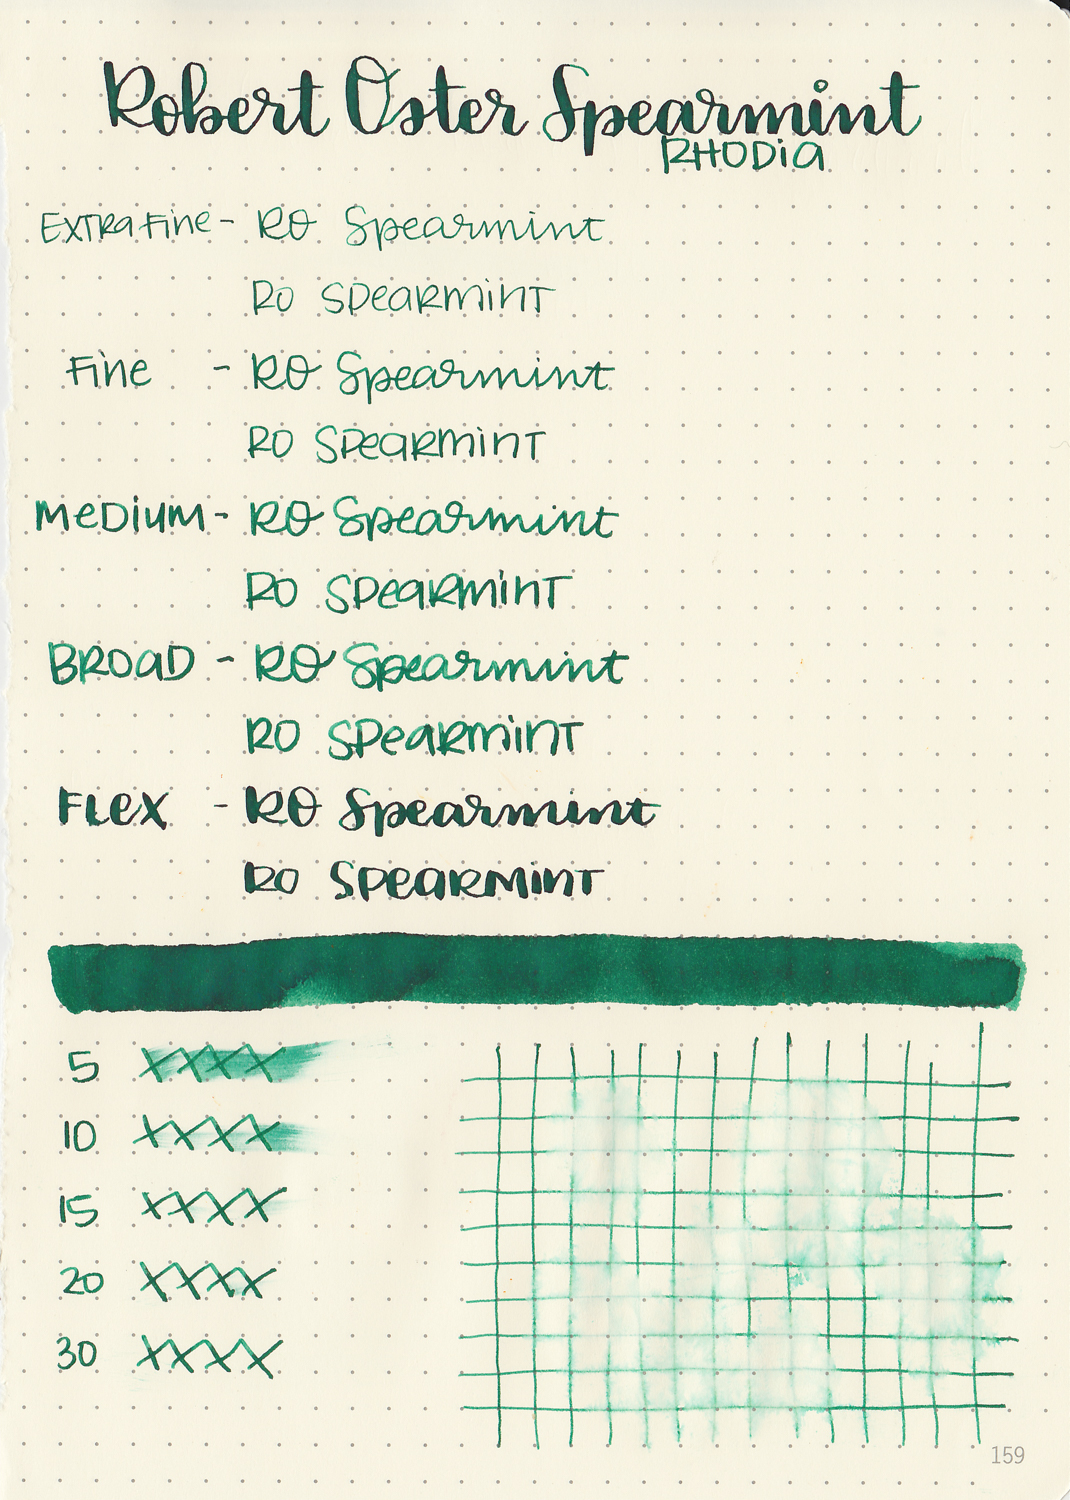 Robert Oster Spearmint
RHODIA
Extra Fine - RO Spearmint
RO Spearmint
Fine - RO Spearmint
RO Spearmint
Medium - RO Spearmint
RO Spearmint
Broad - RO Spearmint
RO Spearmint
Flex - RO Spearmint
RO Spearmint
5 XXXX
10 XXXX
15 XXXX
20 XXXX
30 XXXX
159